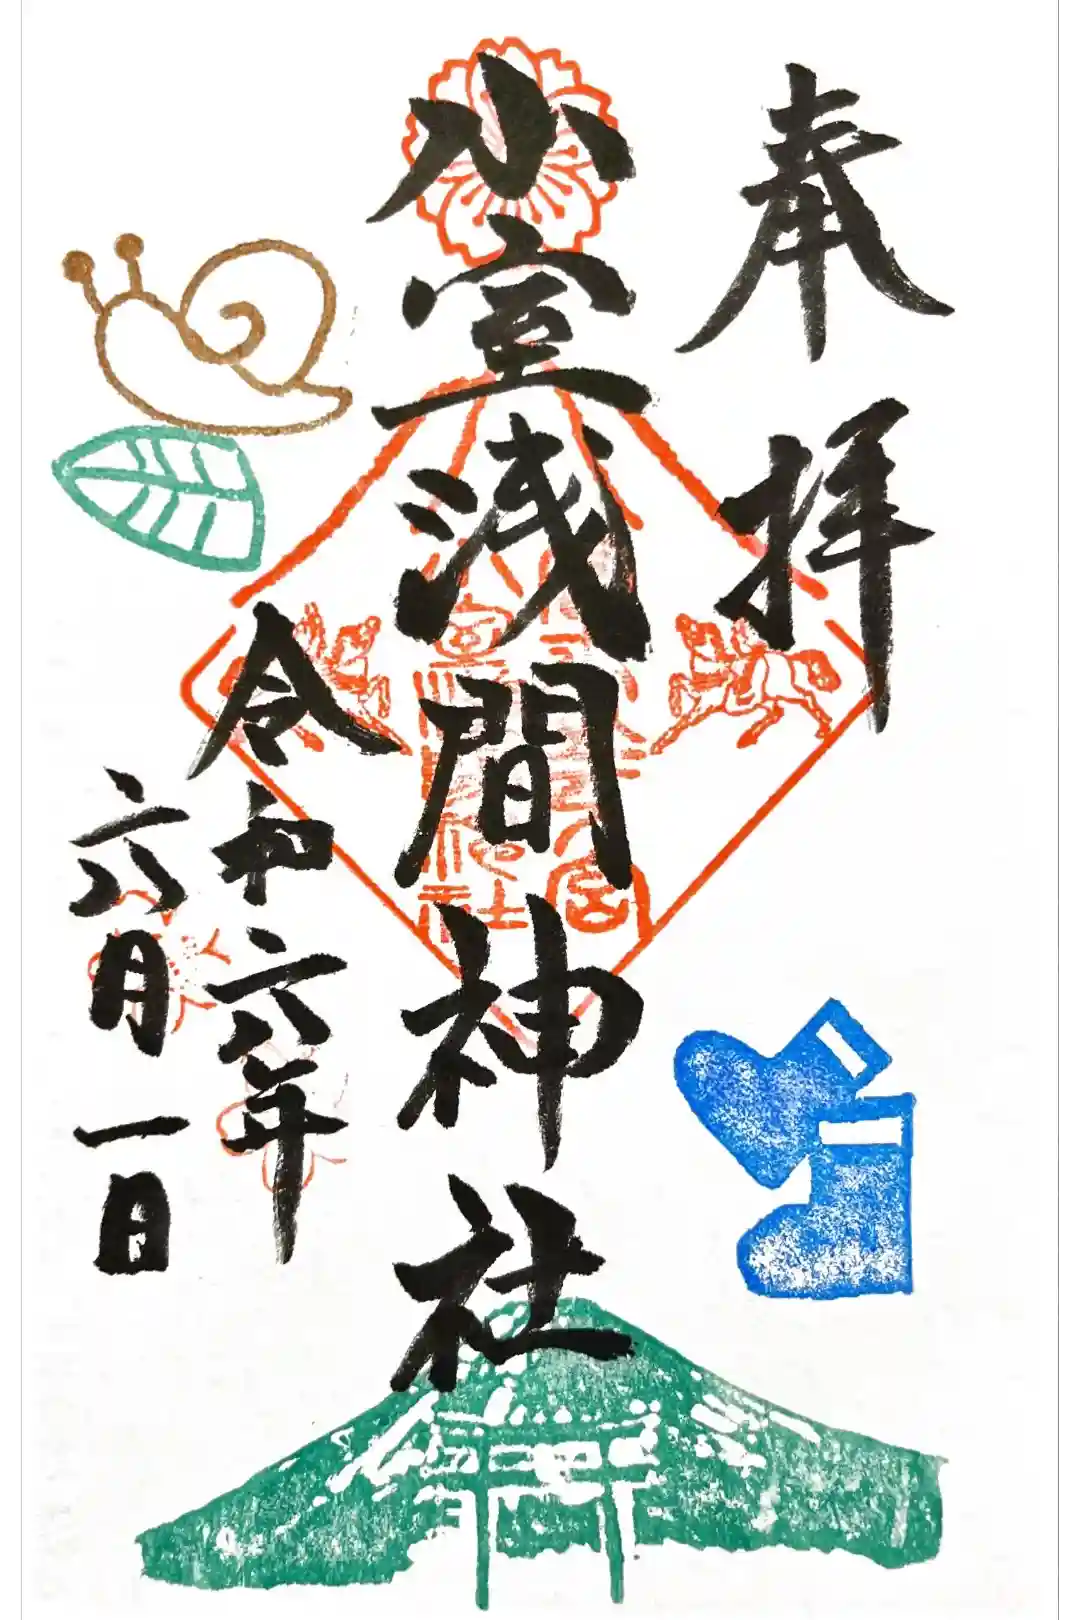 奉拝
小室浅間神社
令和六年
六月一日